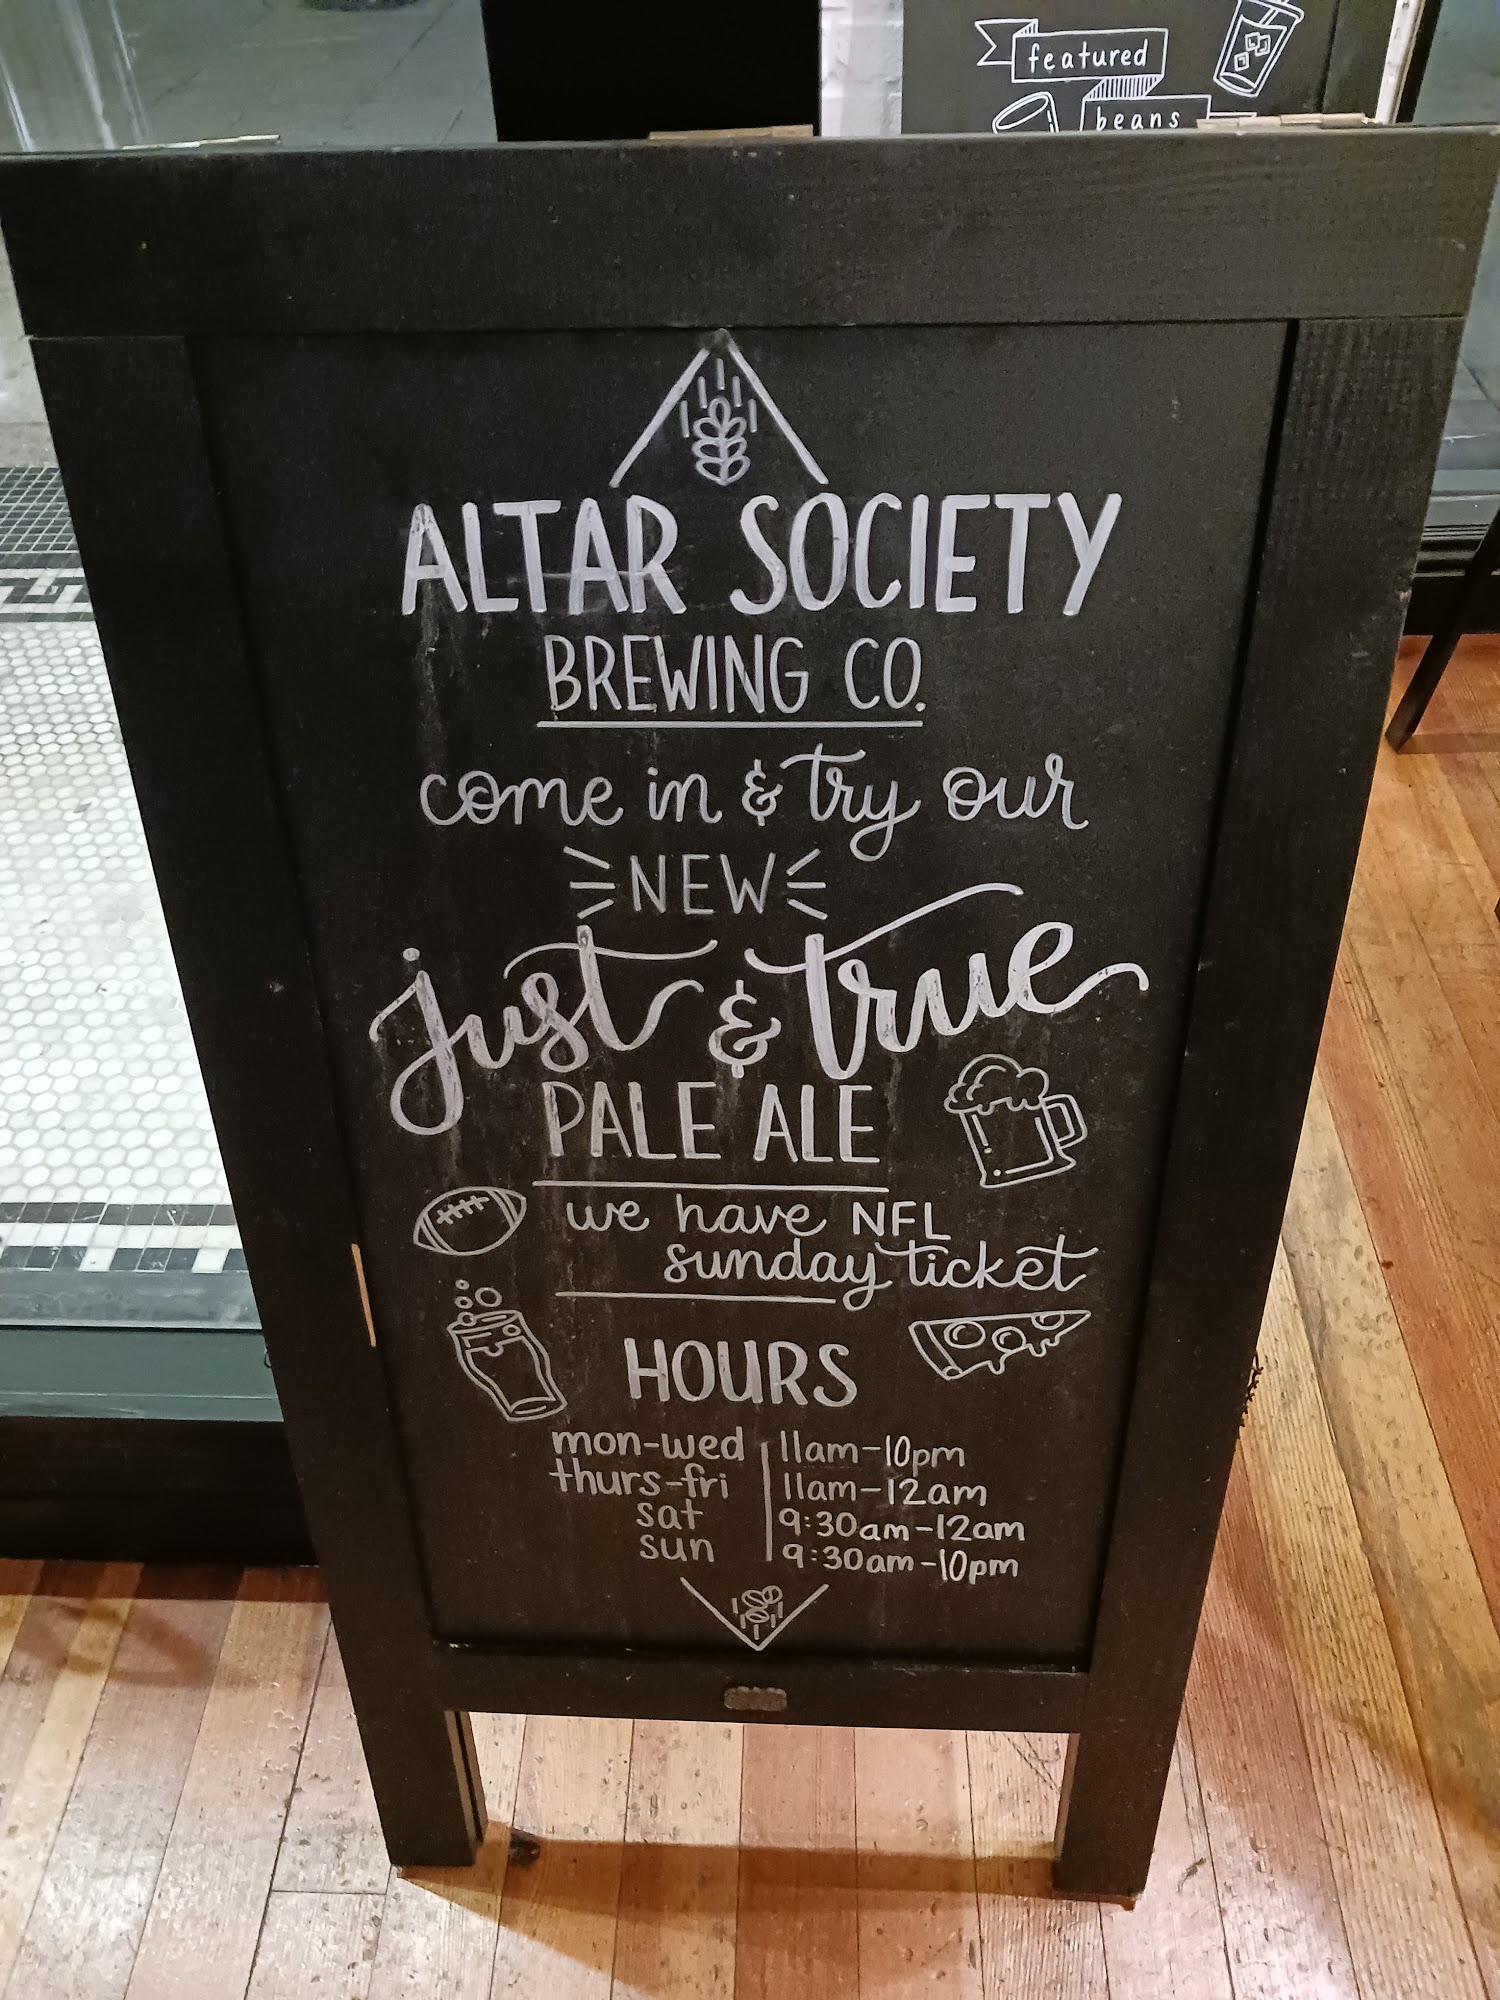 featured
beans
ALTAR SOCIETY
BREWING CO.
come in & try our
NEW
just & true
PALE ALE
we have NFL
sunday ticket
HOURS
mon-wed 11am-10pm
thurs-fri 11am-12am
sat 9:30am-12am
sun 9:30am-10pm